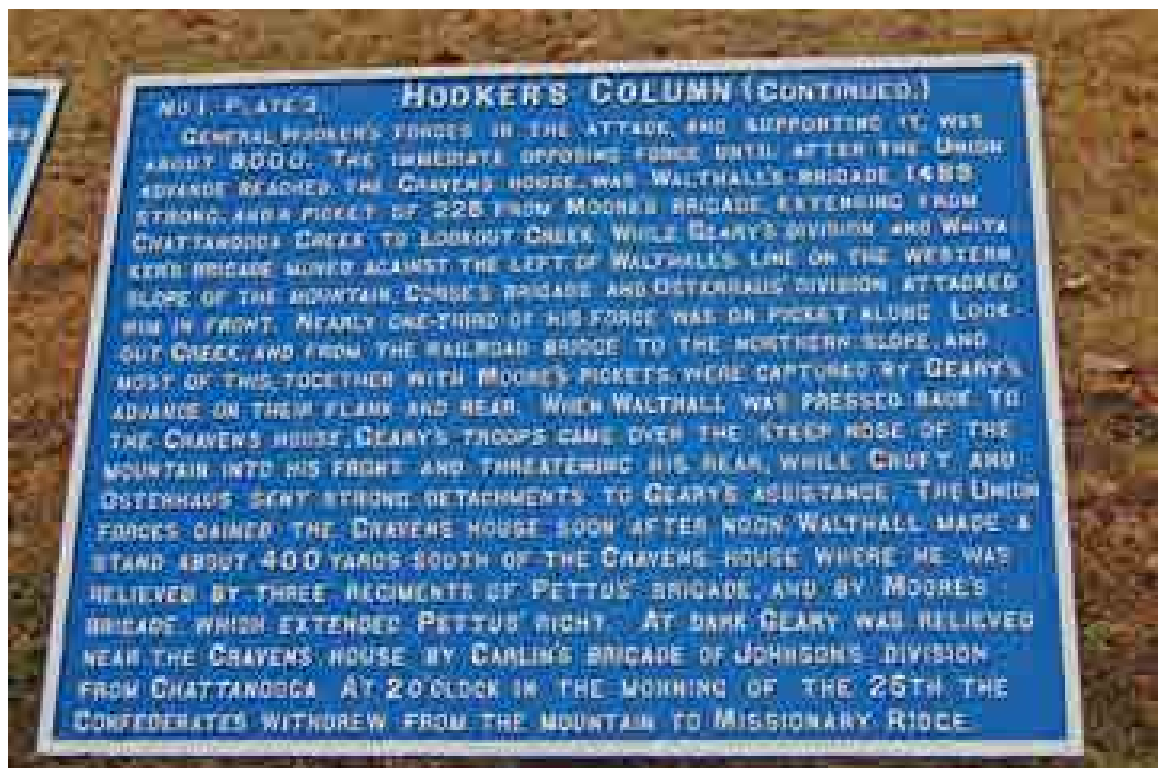 NO 1. PLATE 3. HOOKER'S COLUMN (CONTINUED.)
GENERAL HOOKER'S FORCES IN THE ATTACK, AND SUPPORTING IT, WAS
ABOUT 8000. THE IMMEDIATE OPPOSING FORCE UNTIL AFTER THE UNION
ADVANCE REACHED THE CRAVENS HOUSE, WAS WALTHALL'S BRIGADE 1489
STRONG, AND A PICKET OF 226 FROM MOORE'S BRIGADE EXTENDING FROM
CHATTANOOGA CREEK TO LOOKOUT CREEK. WHILE GEARY'S DIVISION AND WHITA
KERS BRIGADE MOVED AGAINST THE LEFT OF WALTHALL'S LINE ON THE WESTERN
SLOPE OF THE MOUNTAIN, BRIGADE AND OSTERHAUS' DIVISION ATTACKED
HIM IN FRONT. NEARLY ONE-THIRD OF HIS FORCE WAS ON PICKET ALONG LOOK-
OUT CREEK, AND FROM THE RAILROAD BRIDGE TO THE NORTHERN SLOPE, AND
MOST OF THIS, TOGETHER WITH MOORE'S PICKETS, WERE CAPTURED BY GEARY'S
ADVANCE ON THEIR FLANK AND REAR. WHEN WALTHALL WAS PRESSED BACK TO
THE CRAVENS HOUSE, GEARY'S TROOPS CAME OVER THE STEEP NOSE OF THE
MOUNTAIN INTO HIS FRONT AND THREATENING HIS REAR, WHILE CRUFT AND
OSTERHAUS SENT STRONG DETACHMENTS TO GEARY'S ASSISTANCE. THE UNION
FORCES GAINED THE CRAVENS HOUSE SOON AFTER NOON. WALTHALL MADE A
STAND ABOUT 400 YARDS SOUTH OF THE CRAVENS HOUSE WHERE HE WAS
RELIEVED BY THREE REGIMENTS OF PETTUS' BRIGADE, AND BY MOORE'S
BRIGADE WHICH EXTENDED PETTUS' RIGHT. AT DARK GEARY WAS RELIEVED
NEAR THE CRAVENS HOUSE BY CARLIN'S BRIGADE OF JOHNSON'S DIVISION
FROM CHATTANOOGA. AT 2 O'CLOCK IN THE MORNING OF THE 25TH THE
CONFEDERATES WITHDREW FROM THE MOUNTAIN TO MISSIONARY RIDGE.